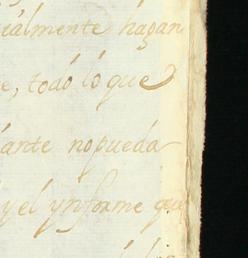 ialmente hagan
e, todo lo que
ante no pueda
y el ynforme que